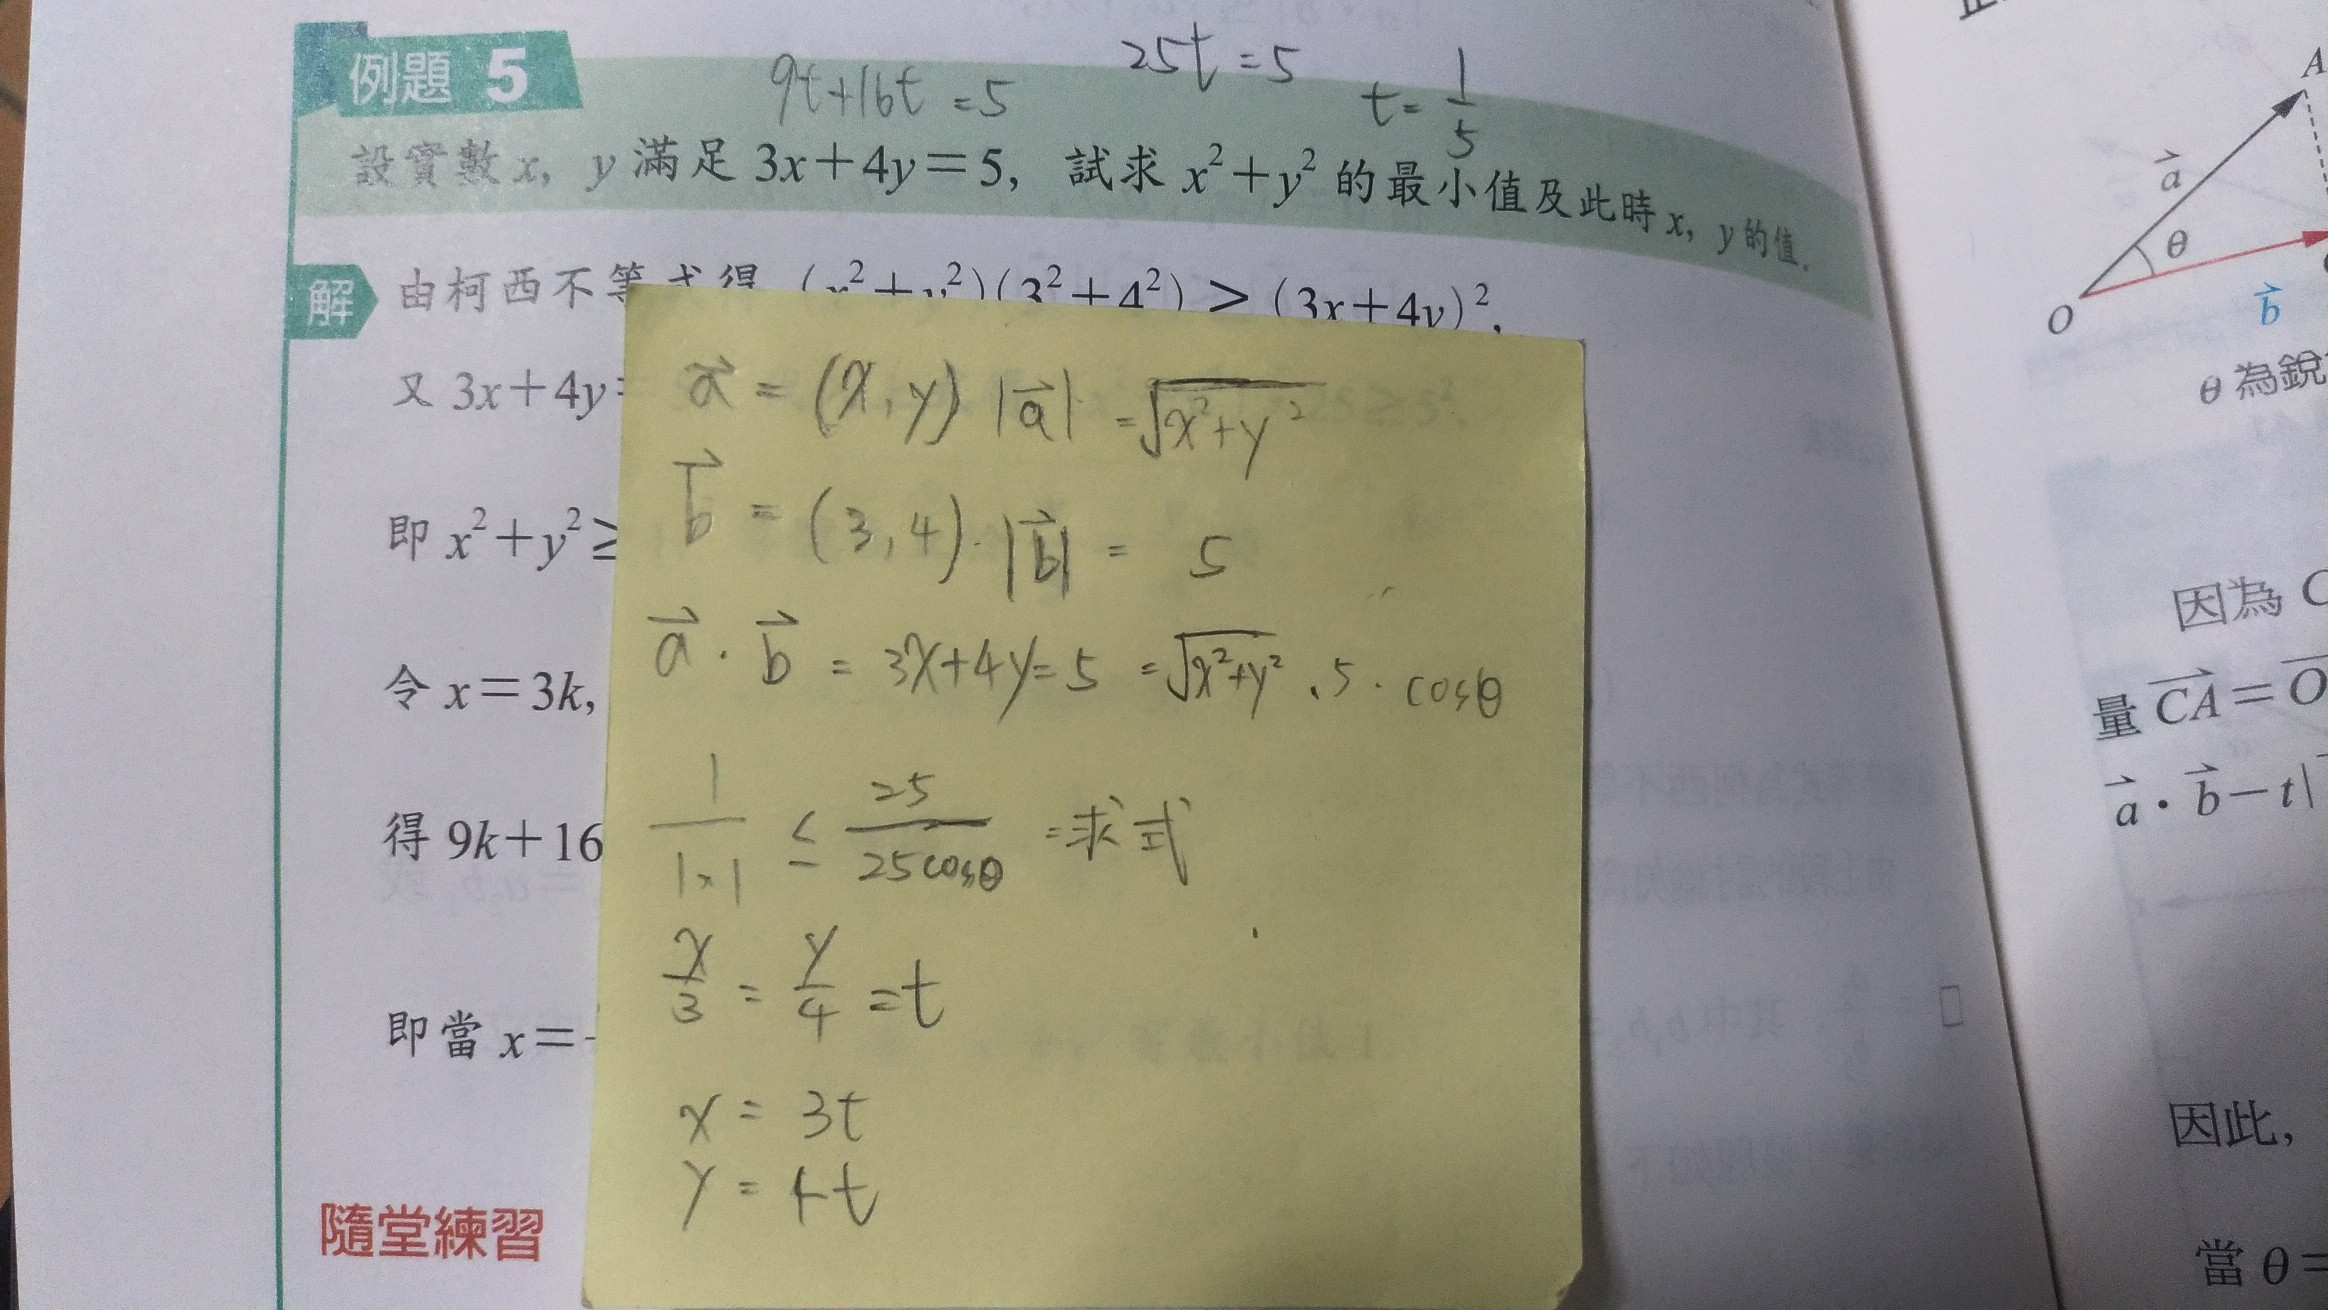 例題 5
9t+16t =5
25t=5
t=1/5
設實數 x, y 滿足 3x+4y=5, 試求 x²+y² 的最小值及此時 x, y 的值.
解 由柯西不等式得 (x²+y²)(3²+4²) ≥ (3x+4y)²,
又 3x+4y=
即 x²+y²≥
令 x=3k,
得 9k+16
即當 x=
a⃗ = (x,y) |a⃗| =√(x²+y²)
b⃗ = (3,4). |b⃗| = 5
a⃗ · b⃗ = 3x+4y=5 =√(x²+y²) . 5 . cosθ
1/(1×1) ≤ 25/(25cosθ) =求式
x/3 = y/4 =t
x = 3t
y = 4t
隨堂練習
A
a⃗
θ
O
b⃗
θ 為銳
因為 C
量 CA⃗=O
a⃗ · b⃗ − t|
因此,
當 θ=